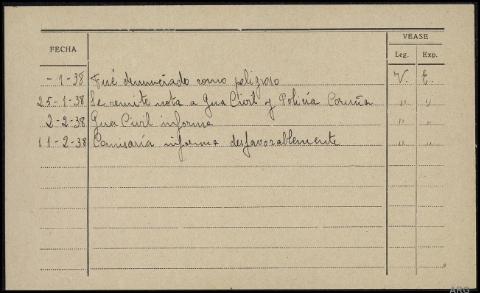 VEASE
FECHA Leg. Exp.
- 1-38 Fué denunciado como peligroso V. E.
25-1-38 Se remite nota a Gua Civil y Policía Coruña " "
2-2-38 Gua Civil informa " "
11-2-38 Comisaría informa desfavorablemente " "
ARG